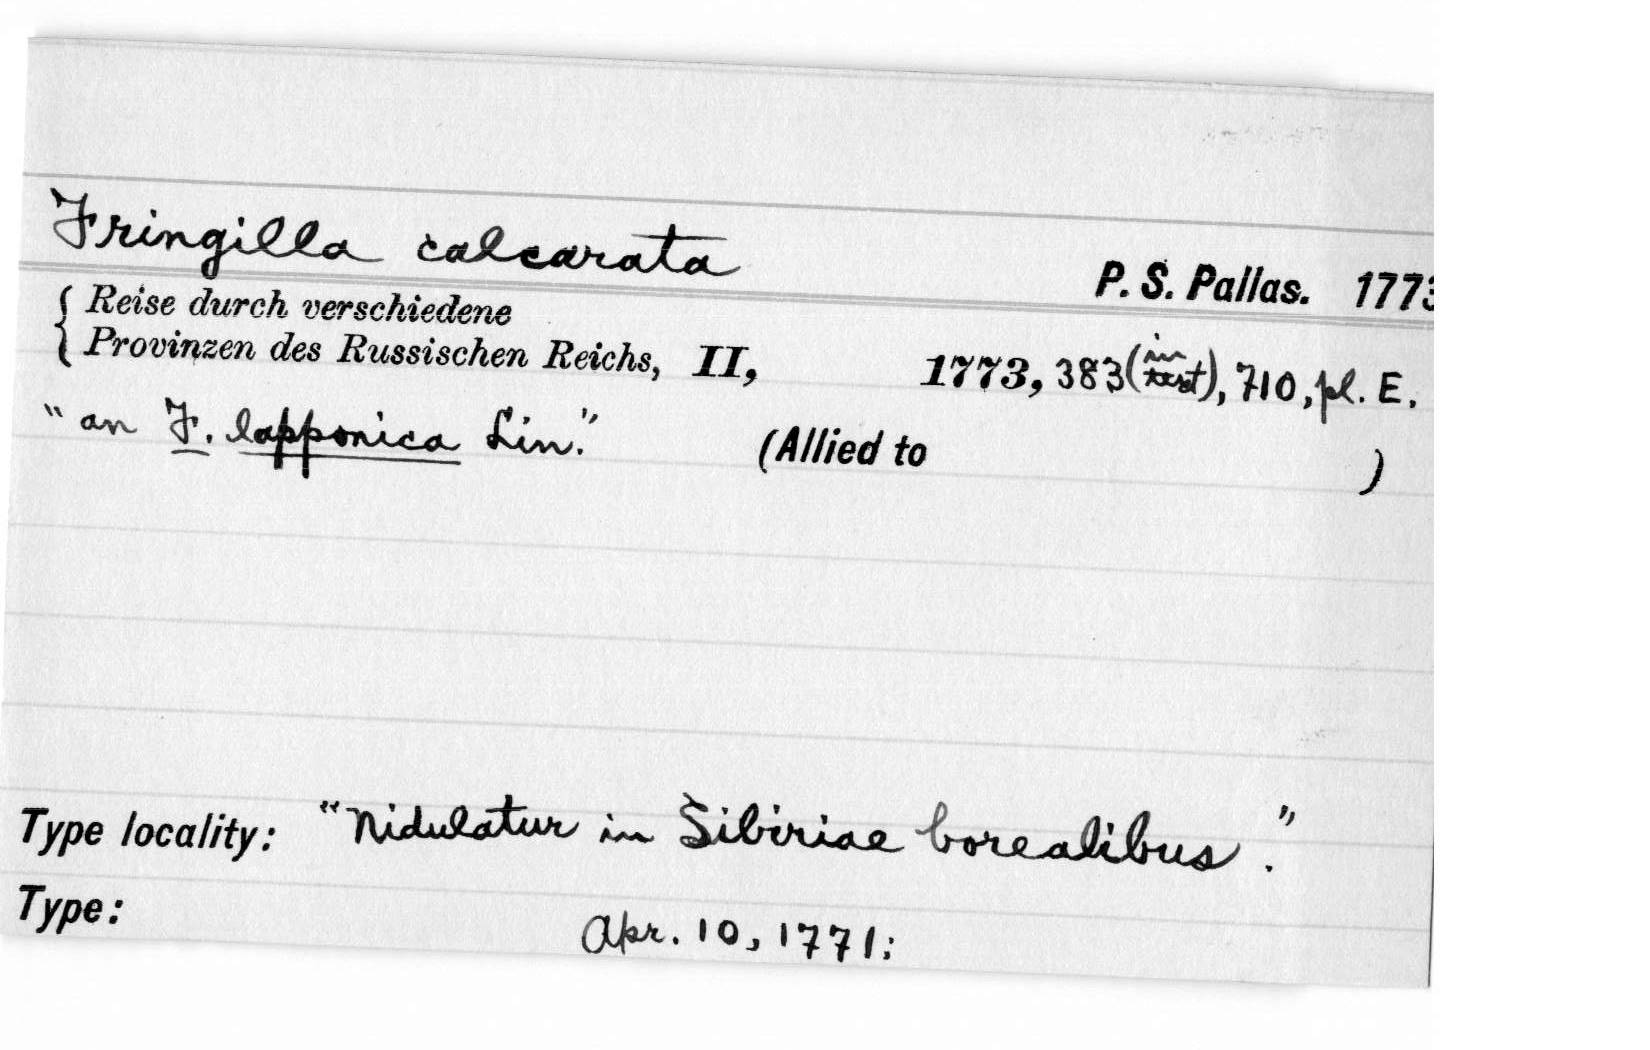 Fringilla calcarata
P. S. Pallas. 1773
{ Reise durch verschiedene
Provinzen des Russischen Reichs, II, 1773, 383 (in text), 710, pl. E.
"an F. lapponica Lin." (Allied to )
Type locality: "Nidulatur in Sibiriae borealibus."
Type: Apr. 10, 1771;